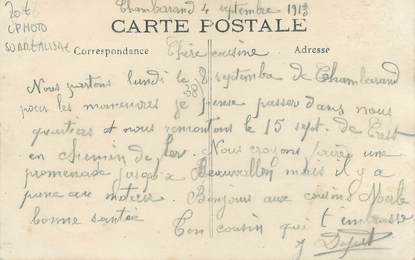 20€
CPHOTO
SURREALISME
Chambarand 4 septembre 1913
CARTE POSTALE
Correspondance
Adresse
Chère cousine
Nous partons lundi le 8 septembre de Chambarand
(38)
pour les manœuvres je pense passer dans nous
quartiers et nous remontons le 15 sept. de Crest
en chemin de fer. Nous croyons faire une
promenade jusqu'à Beauvallon mais il y a
pas aux
Bonjour aux cousins
bonne santée
Ton cousin qui t'embrasse